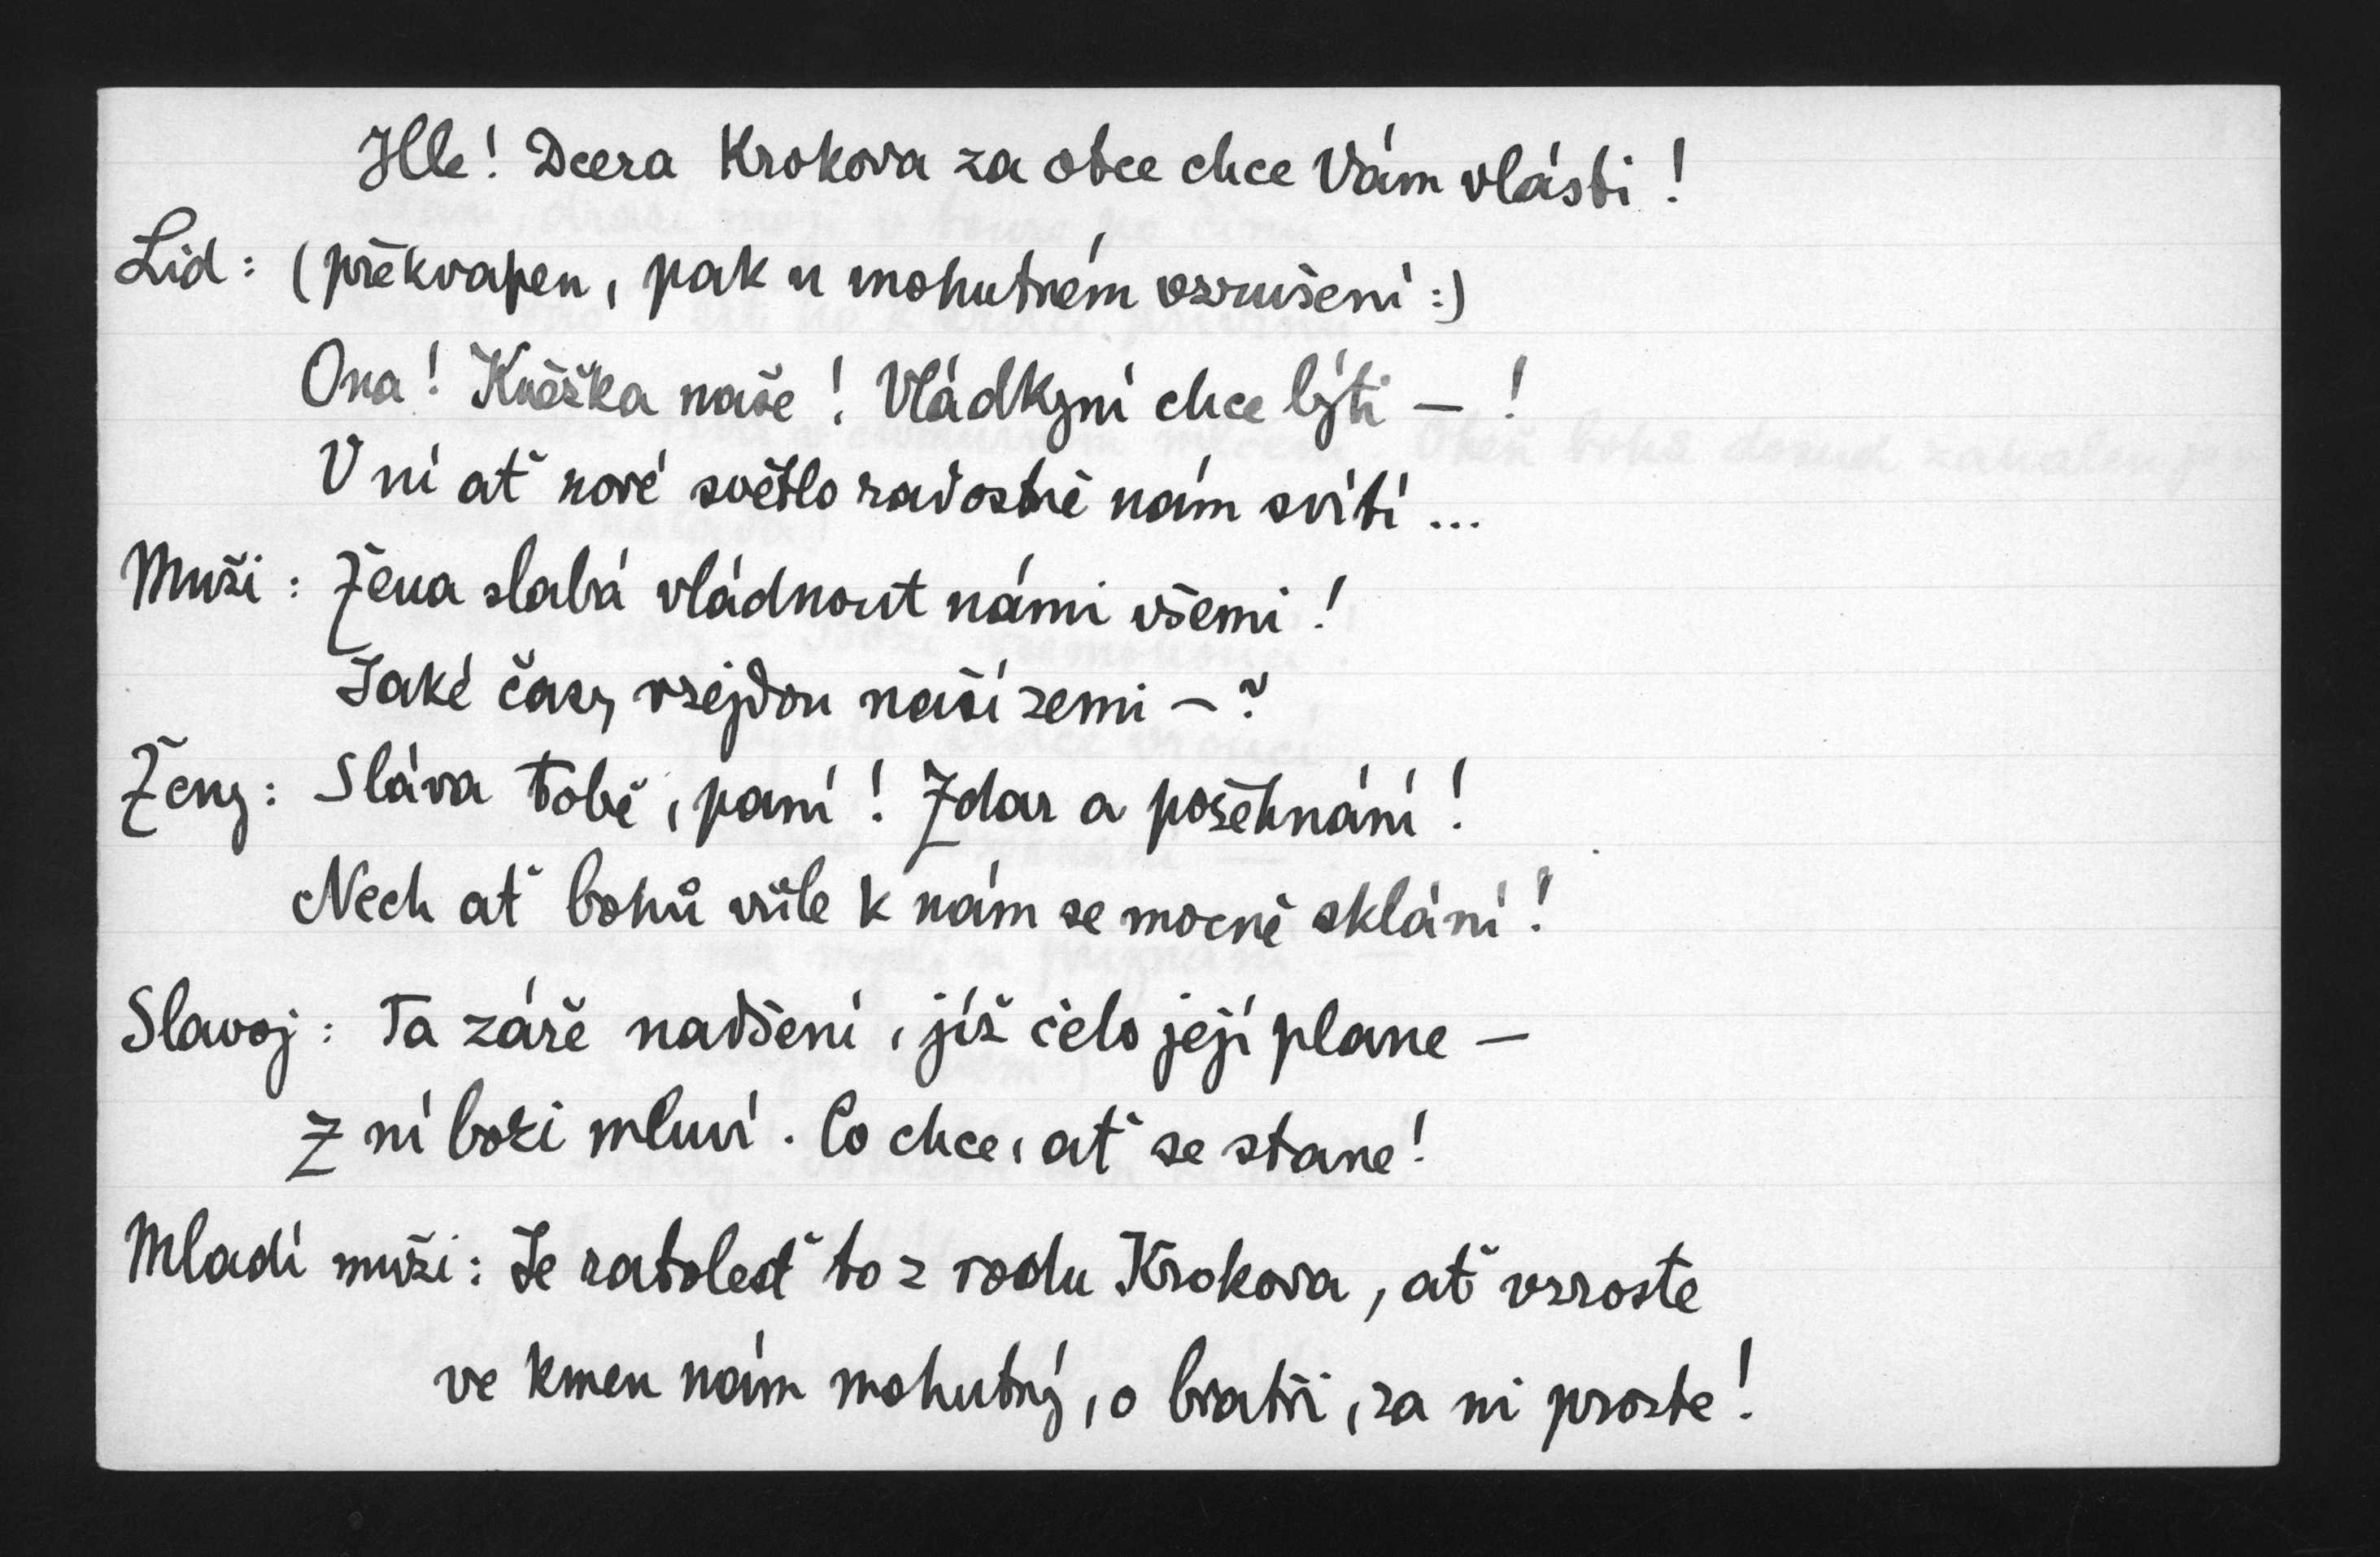 Hle! Dcera Krokova za obce chce Vám vlásti!
Lid: (překvapen, pak u mohutném vzrušení:)
Ona! Kněžka naše! Vládkyní chce býti — !
V ní ať nové světlo radostně nám svítí ...
Muži: Žena slabá vládnout námi všemi!
Jaké časy vzejdou naší zemi — ?
Ženy: Sláva Tobě, paní! Zdar a požehnání!
Nech ať bohů vůle k nám se mocně sklání!
Slavoj: Ta záře nadšení, jíž čelo její plane —
Z ní bozi mluví. Co chce, ať se stane!
Mladí muži: Je ratolesť to z rodu Krokova, ať vzroste
ve kmen nám mohutný, o bratři, za ni proste!